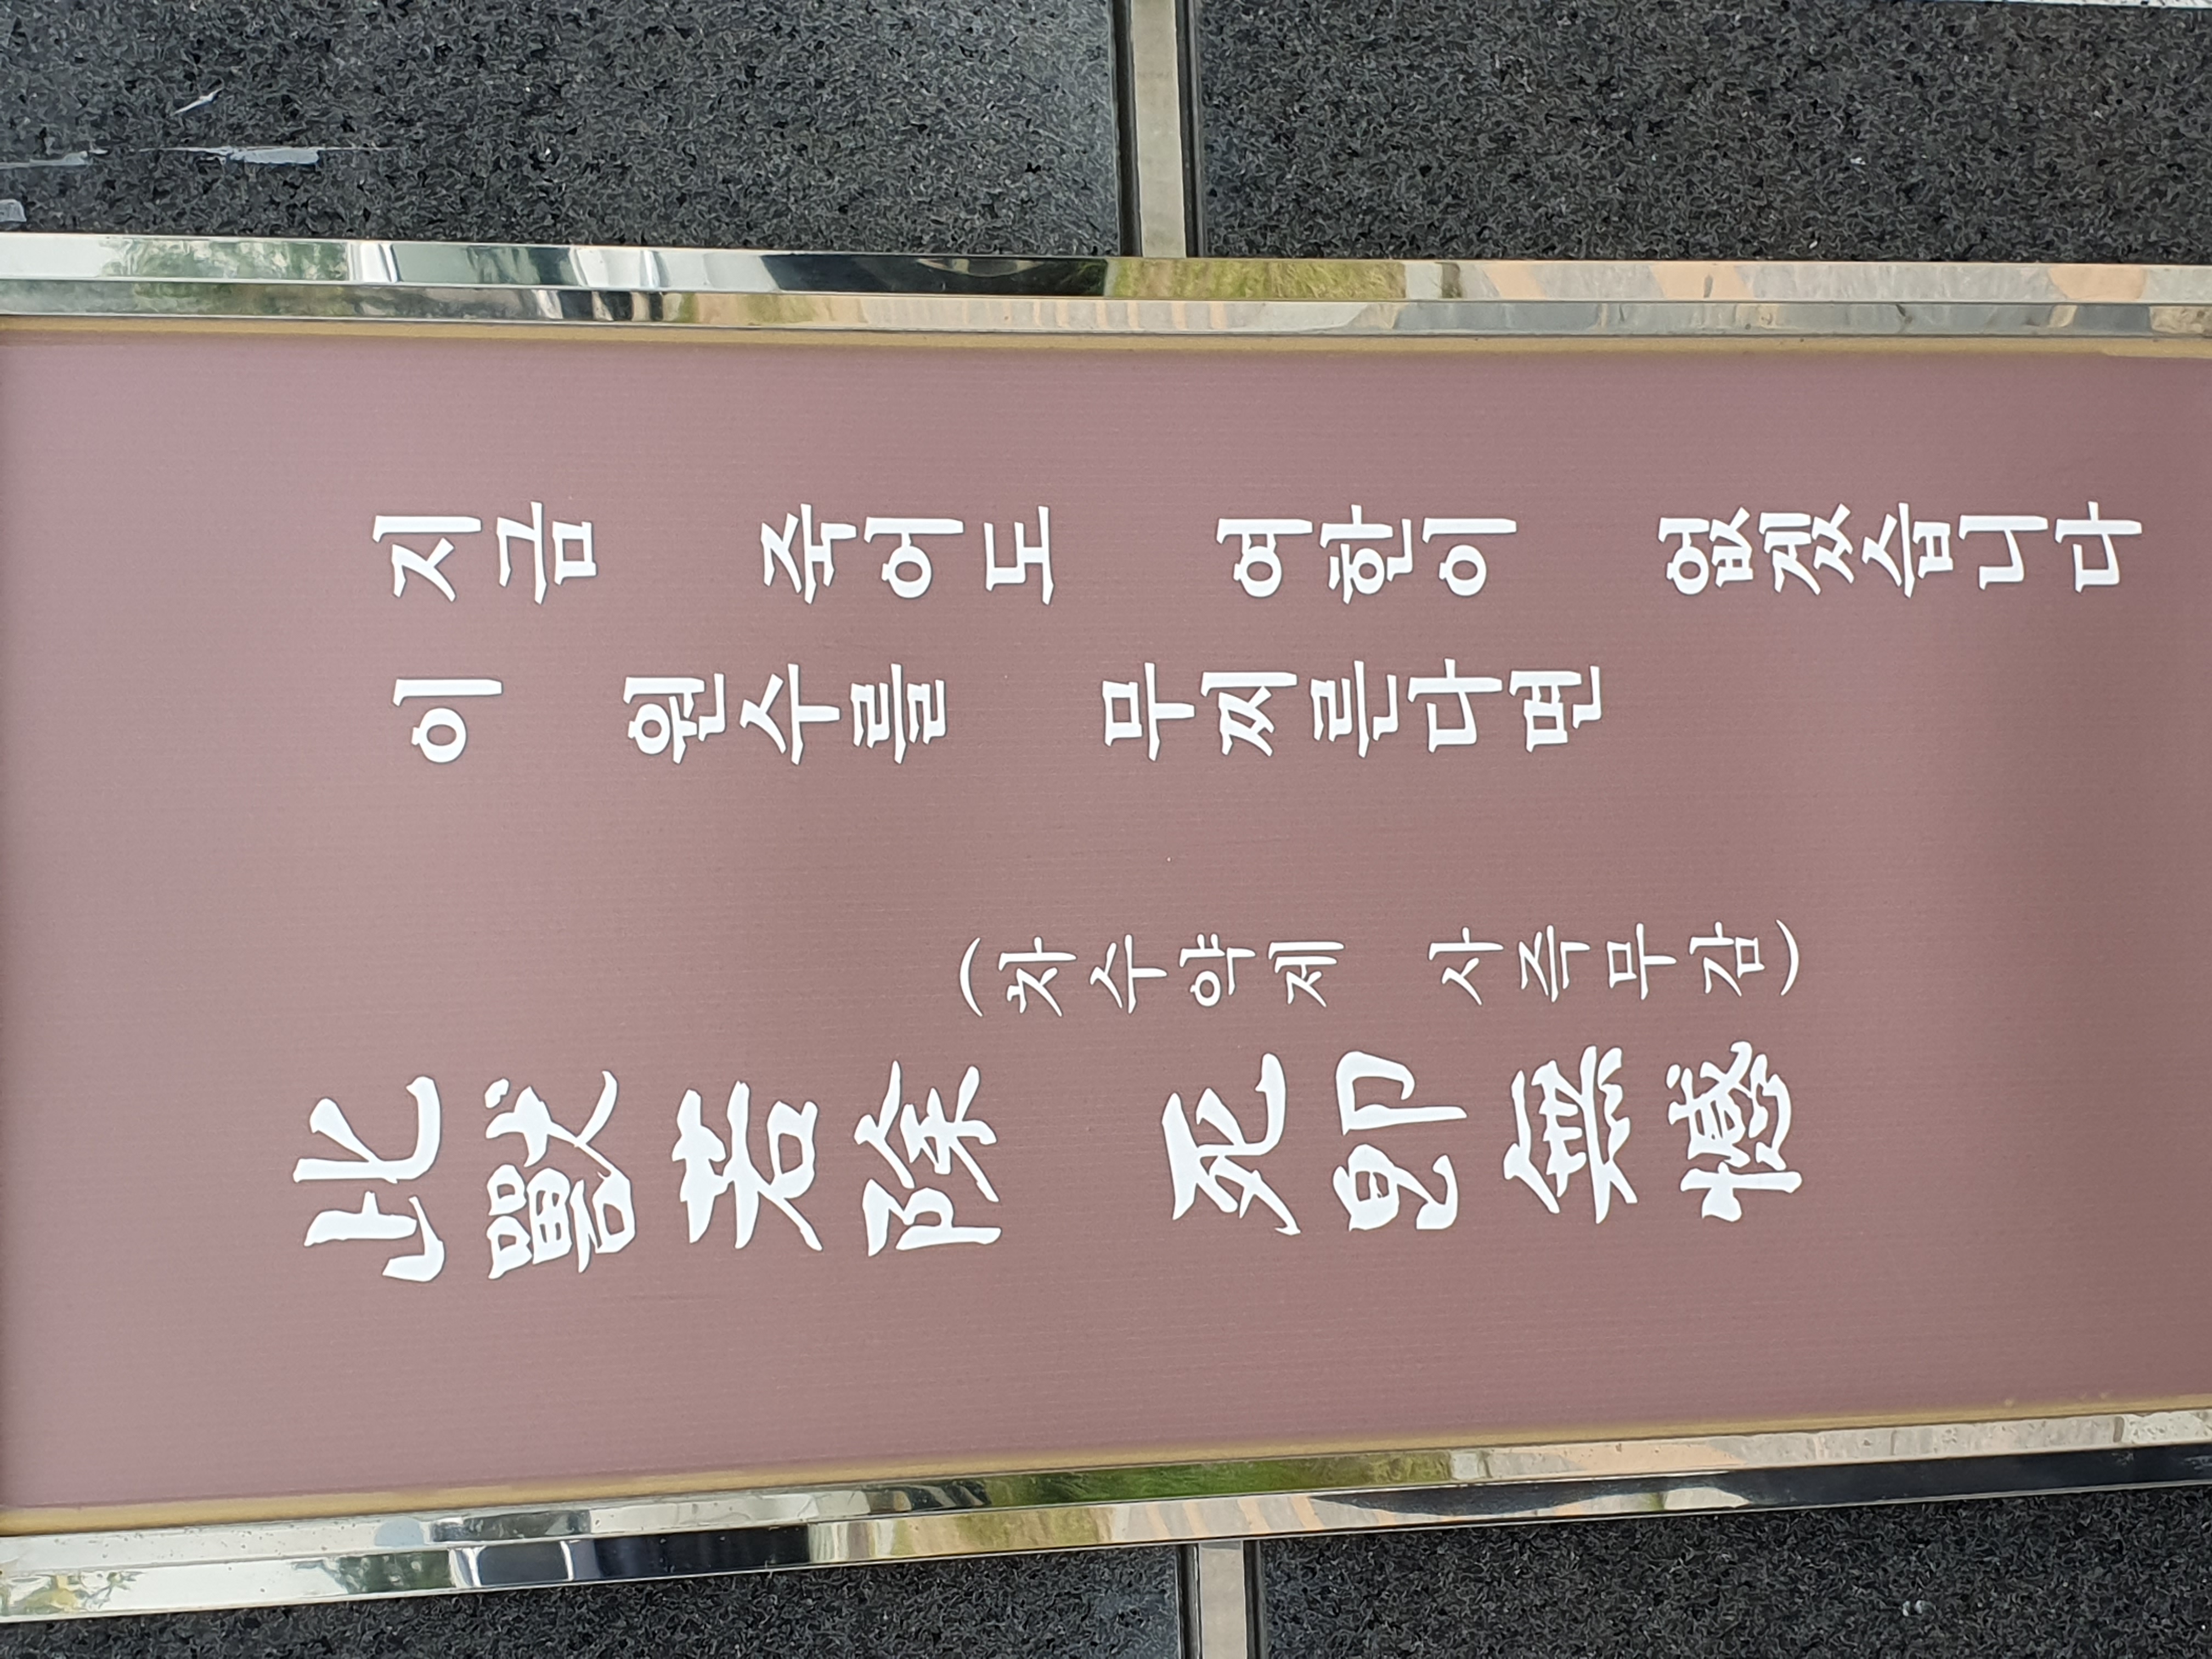 此獸若除 死卽無憾
(차수약제 사즉무감)
이 원수를 무찌른다면
지금 죽어도 여한이 없겠습니다